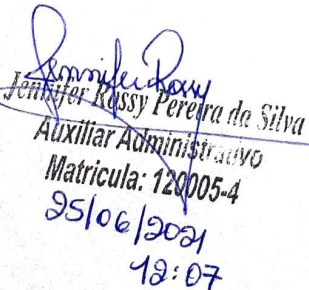 Jennifer Rassy
Jennifer Rassy Pereira da Silva
Auxiliar Administrativo
Matricula: 120005-4
25/06/2021
12:07